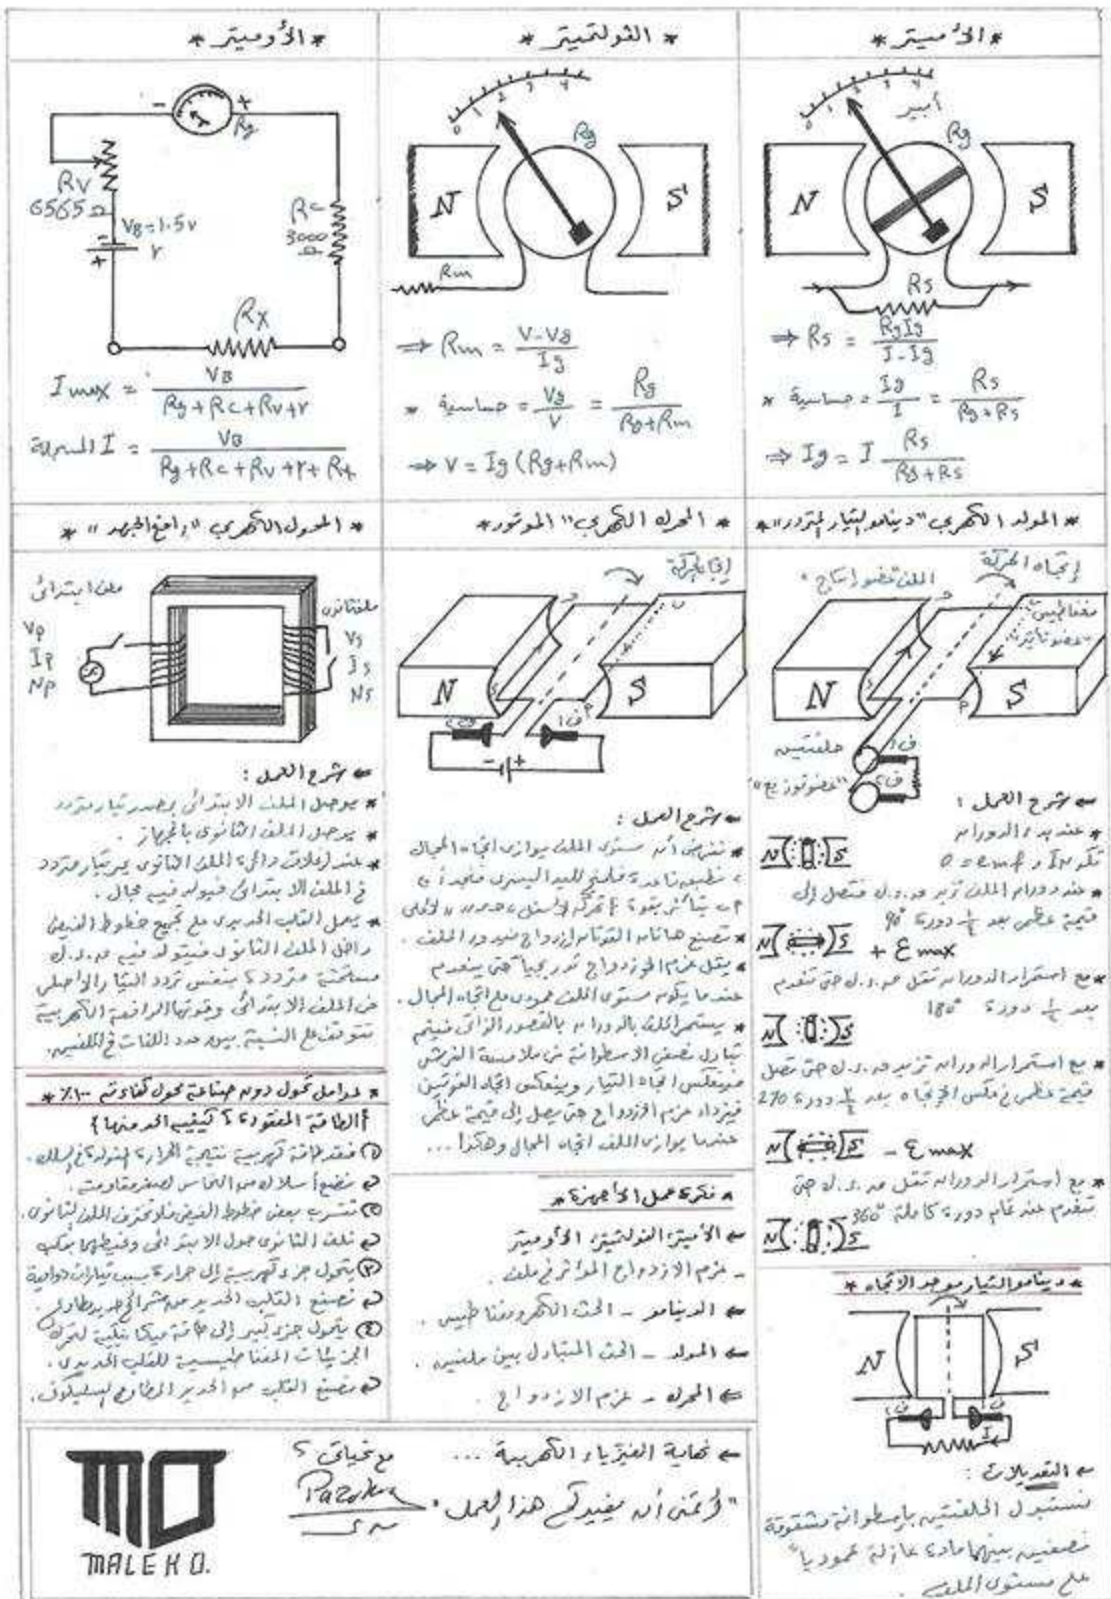 * الأميتر *
0 1 2 3 4
أمبير
Rg
N
S
Rs
⇒ Rs = RgIg / I-Ig
* حساسية = Ig / I = Rs / Rg+Rs
⇒ Ig = I Rs / Rg+Rs
* الڤولتميتر *
0 1 2 3 4
Rg
N
S
Rm
⇒ Rm = V-Vg / Ig
* حساسية = Vg / V = Rg / Rg+Rm
⇒ V = Ig (Rg+Rm)
* الأوميتر *
- +
Rg
Rv
6565 Ω
VB=1.5v
r
Rc
3000
Ω
Rx
I max = VB / Rg+Rc+Rv+r
I المسجلة = VB / Rg+Rc+Rv+r+Rx
* المولد الكهربي "دينامو التيار المتردد" *
إتجاه الحركة
الملف عضو إنتاج
مغناطيس
N
S
حلقتين
"عضو توزيع"
ف١
ف٢
← شرح العمل :
* عند بدء الدوران
تكون emf = 0
* عند دوران الملف تزيد ق.د.ك فتصل إلى
قيمة عظمى بعد ¼ دورة 90°
+ Ɛmax
* مع استمرار الدوران تقل ق.د.ك حتى تنعدم
بعد ½ دورة 180°
* مع استمرار الدوران تزيد ق.د.ك حتى تصل
قيمة عظمى في عكس الإتجاه بعد ¾ دورة 270
- Ɛmax
* مع إستمرار الدوران تقل ق.د.ك حتى
تنعدم عند تمام دورة كاملة 360°
* دينامو التيار موحد الاتجاه *
N
S
ف٢
ف١
I
← التعديلات :
نستبدل الحلقتين بإسطوانة مشقوقة
نصفين بينهما مادة عازلة عموديا
على مستوى الملف .
* المحرك الكهربي "الموتور" *
إتجاه الحركة
N
S
ف٢
ف١
- +
← شرح العمل :
* نفترض أن مستوى الملف يوازى اتجاه المجال
* تصنع هاتان القوتان إزدواج فيدور الملف .
* يقل عزم الإزدواج تدريجيا حتى ينعدم
عندما يكون مستوى الملف عمودى على اتجاه المجال .
* يستمر الملف بالدوران بالقصور الذاتى فيتم
تبادل نصفى الاسطوانة فى ملامسة الفرش
فينعكس اتجاه التيار وينعكس اتجاه القوتين
فيزداد عزم الإزدواج حتى يصل إلى قيمة عظمى
عندما يوازى الملف اتجاه المجال وهكذا ...
* فكرة عمل الأجهزة *
← الأميتر، الڤولتميتر، الأوميتر
- عزم الازدواج المؤثر في ملف .
← الدينامو - الحث الكهرومغناطيسى .
← المولد - الحث المتبادل بين ملفين .
← المحرك - عزم الازدواج .
* المحول الكهربي "رافع الجهد" *
ملف ابتدائى
ملف ثانوى
Vp
Ip
Np
Vs
Is
Ns
← شرح العمل :
* يوصل الملف الابتدائى بمصدر تيار متردد
* يوصل الملف الثانوى بالجهاز .
* عند إغلاق دائرة الملف الثانوى يمر تيار متردد
فى الملف الابتدائى فيولد فيه مجال .
* يعمل القلب الحديدى على تجميع خطوط الفيض
داخل الملف الثانوى فيتولد فيه ق.د.ك
مستحثة مترددة بنفس تردد التيار الواصل
من الملف الابتدائى وقوتها الدافعة الكهربية
تتوقف على النسبة بين عدد اللفات فى الملفين.
* عوامل تحول دون صناعة محول كفاءته ١٠٠٪ *
{الطاقة المفقودة & كيفية الحد منها}
① فقد طاقة كهربية نتيجة الحرارة المتولدة فى السلك.
تصنع أسلاك من النحاس لصغر مقاومته.
② تتسرب بعض خطوط الفيض فلا تخترف الملف الثانوى.
تلف الثانوى حول الابتدائى
③ يتحول جزء كهربية إلى حرارة بسبب تيارات دوامية
تصنع القلب الحديد من شرائح حديد مطاوع.
④ يتحول جزء كبير إلى طاقة ميكانيكية لتحرك
الجزيئات المغناطيسية للقلب الحديدى .
تصنع القلب من الحديد المطاوع السليكونى.
← نهاية الفيزياء الكهربية ...
مع تحياتى
"أتمنى أن يفيدكم هذا العمل"
MO
MALEKO.